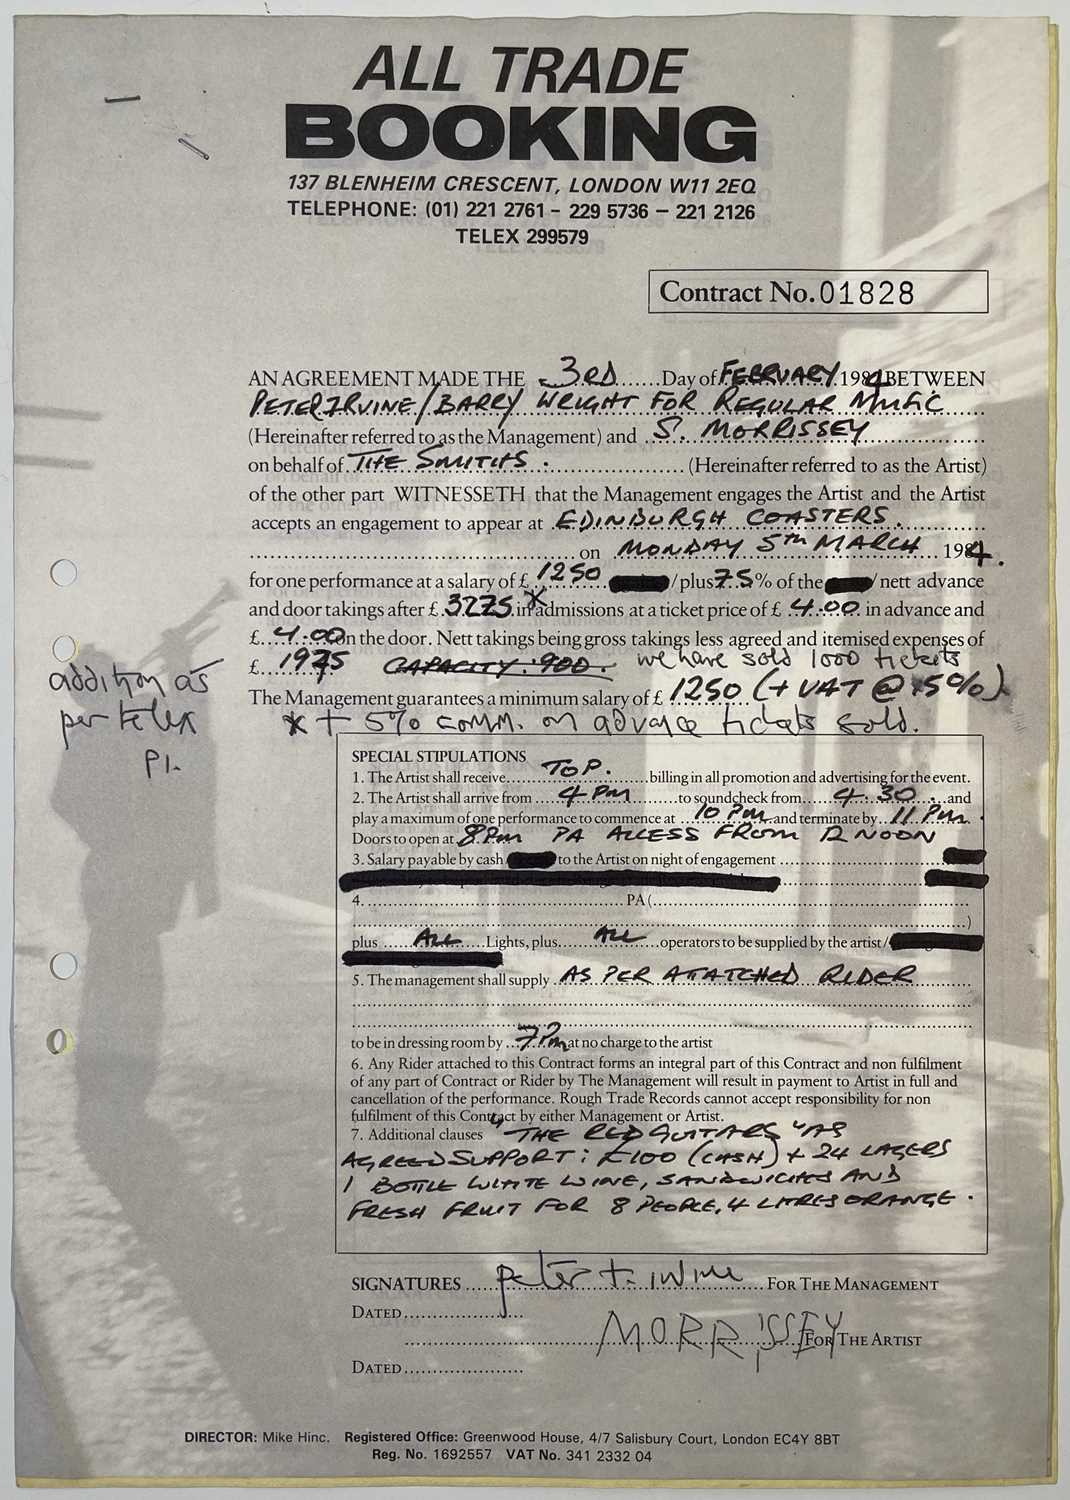 ALL TRADE
BOOKING
137 BLENHEIM CRESCENT, LONDON W11 2EQ
TELEPHONE: (01) 221 2761 – 229 5736 – 221 2126
TELEX 299579
Contract No. 01828
AN AGREEMENT MADE THE 3RD Day of FEBRUARY 1984 BETWEEN
PETER IRVINE / BARRY WRIGHT FOR REGULAR MUSIC
(Hereinafter referred to as the Management) and S. MORRISSEY
on behalf of THE SMITHS. (Hereinafter referred to as the Artist)
of the other part WITNESSETH that the Management engages the Artist and the Artist
accepts an engagement to appear at EDINBURGH COASTERS.
on MONDAY 5TH MARCH 1984.
for one performance at a salary of £ 1250 / plus 75% of the / nett advance
and door takings after £ 3275 in x admissions at a ticket price of £ 4.00 in advance and
£ 4.00 on the door. Nett takings being gross takings less agreed and itemised expenses of
£ 1975 CAPACITY 900. we have sold 1000 tickets
The Management guarantees a minimum salary of £ 1250 (+ VAT @ 15%)
x + 5% comm. on advance tickets sold.
addition as
per telex
P1.
SPECIAL STIPULATIONS
1. The Artist shall receive TOP. billing in all promotion and advertising for the event.
2. The Artist shall arrive from 4 PM to soundcheck from 4.30 and
play a maximum of one performance to commence at 10 PM and terminate by 11 PM.
Doors to open at 8PM PA ACCESS FROM 12 NOON
3. Salary payable by cash to the Artist on night of engagement
4. PA (
)
plus ALL Lights, plus ALL operators to be supplied by the artist /
5. The management shall supply AS PER ATATCHED RIDER
to be in dressing room by 7PM at no charge to the artist
6. Any Rider attached to this Contract forms an integral part of this Contract and non fulfilment
of any part of Contract or Rider by The Management will result in payment to Artist in full and
cancellation of the performance. Rough Trade Records cannot accept responsibility for non
fulfilment of this Contract by either Management or Artist.
7. Additional clauses "THE RED GUITARS" AS
AGREED SUPPORT: £100 (CASH) + 24 LAGERS
1 BOTTLE WHITE WINE, SANDWICHES AND
FRESH FRUIT FOR 8 PEOPLE, 4 LITRES ORANGE.
SIGNATURES Peter T. Irvine FOR THE MANAGEMENT
DATED
MORRISSEY FOR THE ARTIST
DATED
DIRECTOR: Mike Hinc. Registered Office: Greenwood House, 4/7 Salisbury Court, London EC4Y 8BT
Reg. No. 1692557 VAT No. 341 2332 04